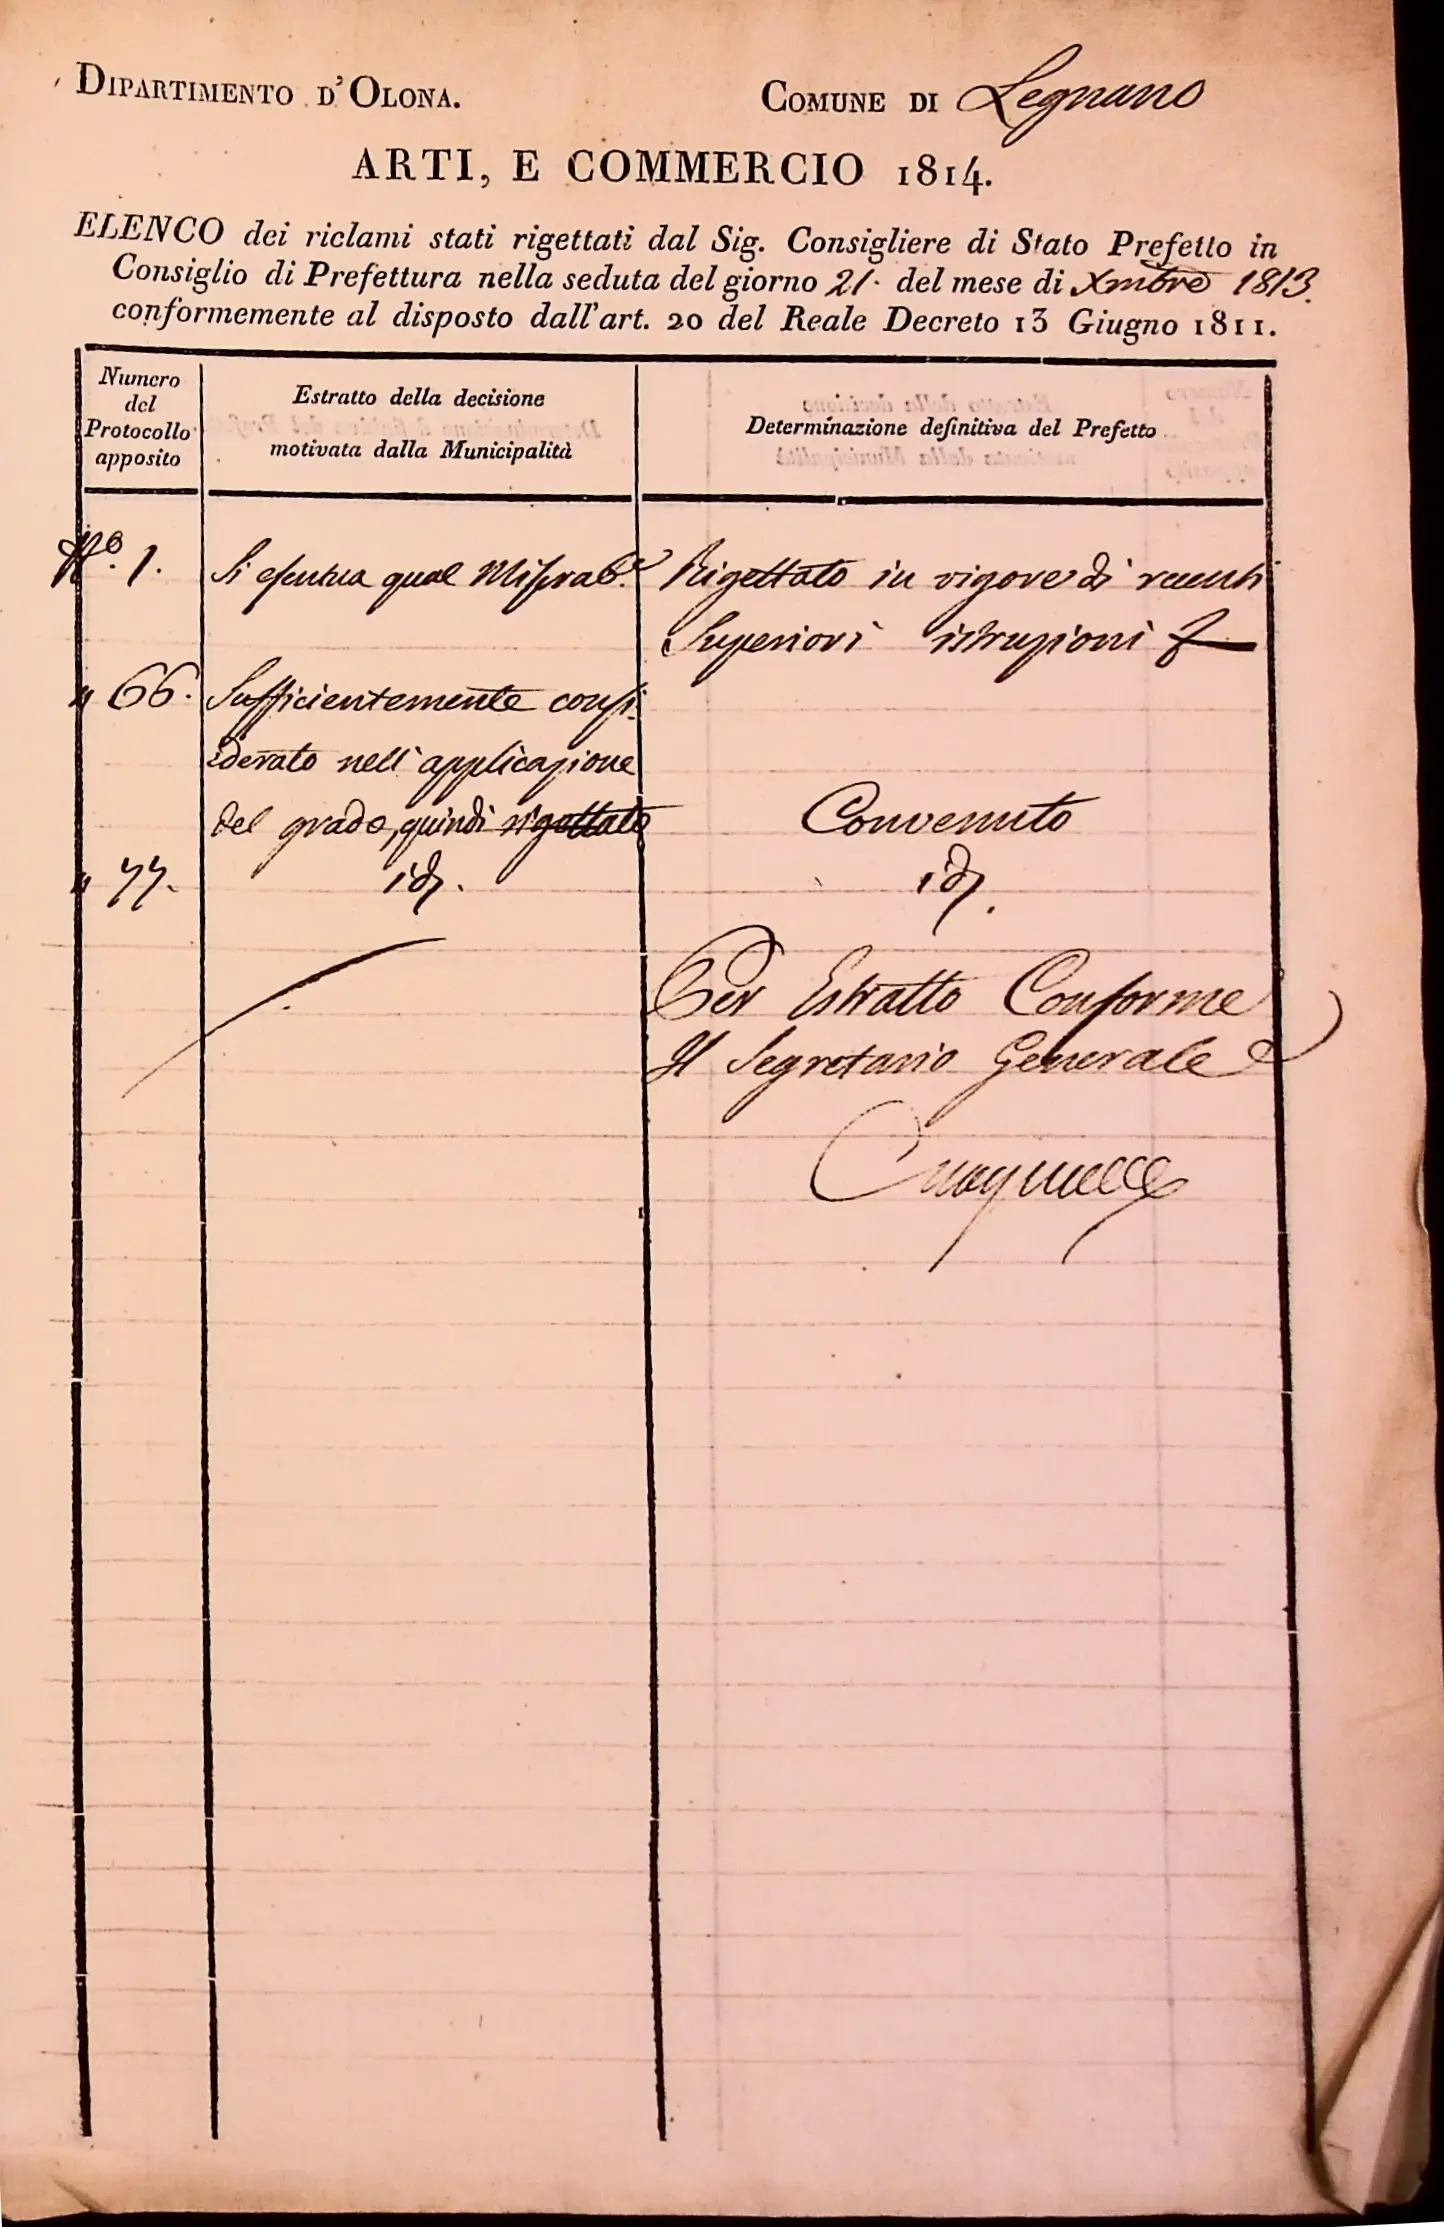 DIPARTIMENTO D'OLONA.
COMUNE DI Legnano
ARTI, E COMMERCIO 1814.
ELENCO dei riclami stati rigettati dal Sig. Consigliere di Stato Prefetto in
Consiglio di Prefettura nella seduta del giorno 21. del mese di Xmbre 1813.
conformemente al disposto dall'art. 20 del Reale Decreto 13 Giugno 1811.
Numero
del
Protocollo
apposito
Estratto della decisione
motivata dalla Municipalità
Determinazione definitiva del Prefetto
N.o 1.
Si esentua qual Miserab.e
Rigettato in vigore di recenti
Superiori istruzioni
" 66.
Sufficientemente consi-
derato nell'applicazione
del grado, quindi rigettato
Convenuto
" 77.
id.
id.
Per Estratto Conforme
Il Segretario Generale